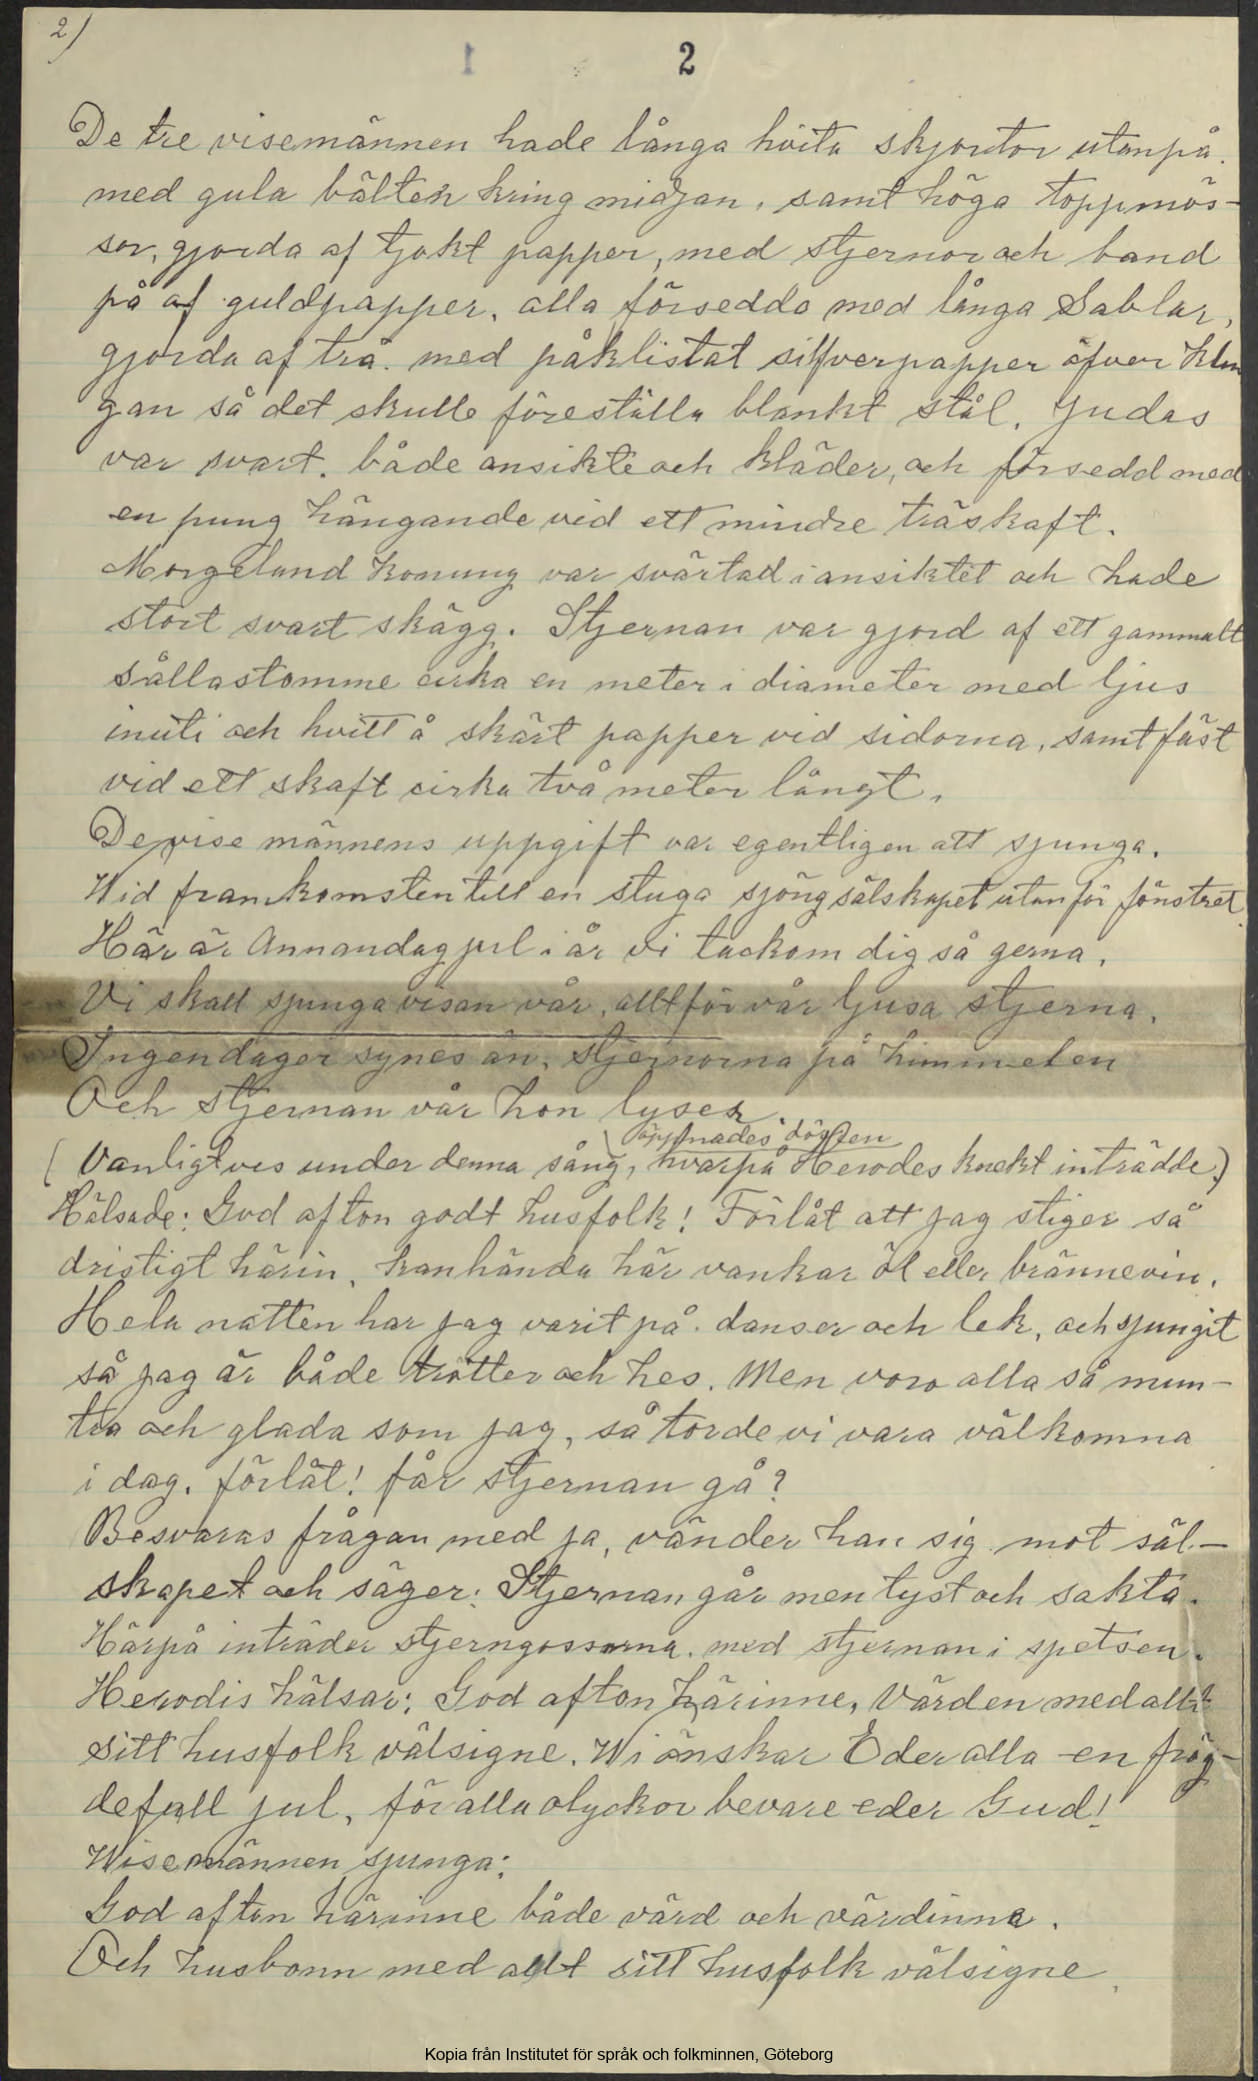 2)
1 2
De tre visemännen hade långa hvita skjortor utanpå.
med gula bälten kring midjan, samt höga toppmös-
sor, gjorda af tjokt papper, med stjernor och band
på af guldpapper, alla försedda med långa Sablar,
gjorda af trä. med påklistat silfverpapper öfver klin
gan så det skulle föreställa blankt stål. Judas
var svart. både ansikte och kläder, och försedd med
en pung hängande vid ett mindre träskaft.
Morgeland konung var svärtad i ansiktet och hade
stort svart skägg. Stjernan var gjord af ett gammalt
sållastomme cirka en meter i diameter med ljus
inuti och hvitt å skärt papper vid sidorna, samt fäst
vid ett skaft cirka två meter långt.
De vise männens uppgift var egentligen att sjunga.
Wid framkomsten till en stuga sjöng sälskapet utanför fönstret.
Här är Annandag jul i år vi tackom dig så gerna.
Vi skall sjunga visan vår, allt för vår ljusa stjerna.
Ingen dager synes än, stjernorna på himmelen
Och stjernan vår hon lyser.
öppnades dörren
(Vanligtvis under denna sång, hvarpå Herodes knekt inträdde.)
Hälsade: God afton godt husfolk! Förlåt att jag stiger så
dristigt härin, kanhända här vankar öl eller brännevin.
Hela natten har jag varit på danser och lek, och sjungit
så jag är både trötter och hes. Men voro alla så mun-
tra och glada som jag, så torde vi vara välkomna
i dag. förlåt! får stjernan gå?
Besvaras frågan med ja, vänder han sig mot säl-
skapet och säger: Stjernan går men tyst och sakta.
Härpå inträder stjerngossarna. med stjernan i spetsen.
Herodis hälsar: God afton härinne, Värden med allt
sitt husfolk välsigne. Wi önskar Eder alla en fröj-
defull jul, för alla olyckor bevare eder Gud!
Wisemännen sjunga:
God afton härinne både värd och värdinna.
Och husbonn med allt sitt husfolk välsigne.
Kopia från Institutet för språk och folkminnen, Göteborg